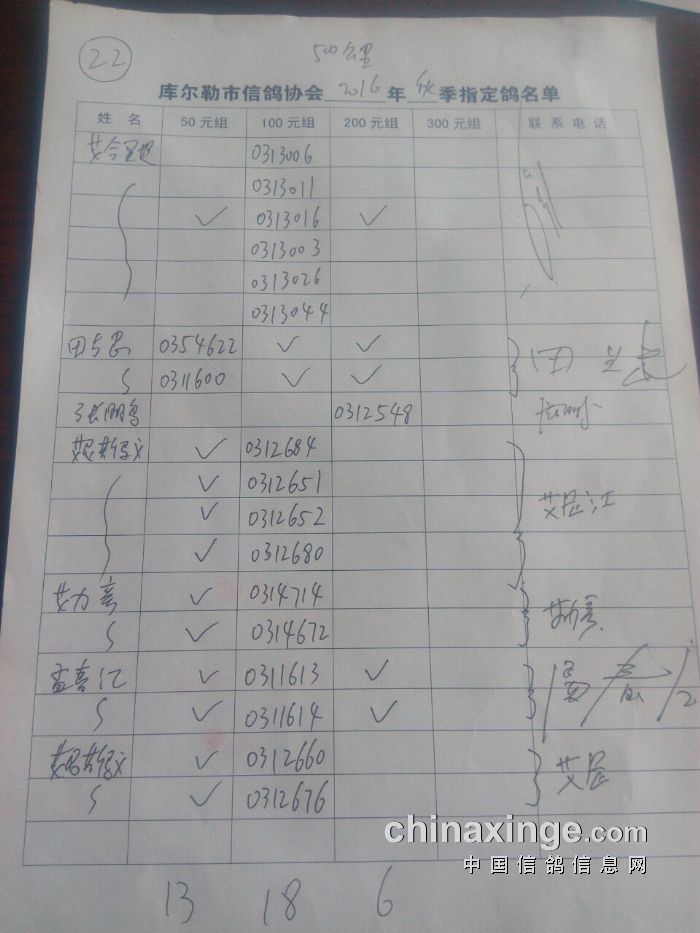 22
500公里
库尔勒市信鸽协会2016年秋季指定鸽名单
姓 名 50元组 100元组 200元组 300元组 联系电话
0313006
0313011
✓ 0313016 ✓
0313003
0313026
0313044
0354622 ✓ ✓
0311600 ✓ ✓
张鹏鸟 0312548
✓ 0312684
✓ 0312651
✓ 0312652 艾尼江
✓ 0312680
艾力 ✓ 0314714
✓ 0314672
✓ 0311613 ✓
✓ 0311614 ✓
✓ 0312660 艾尼
✓ 0312676
chinaxinge.com
中国信鸽信息网
13 18 6